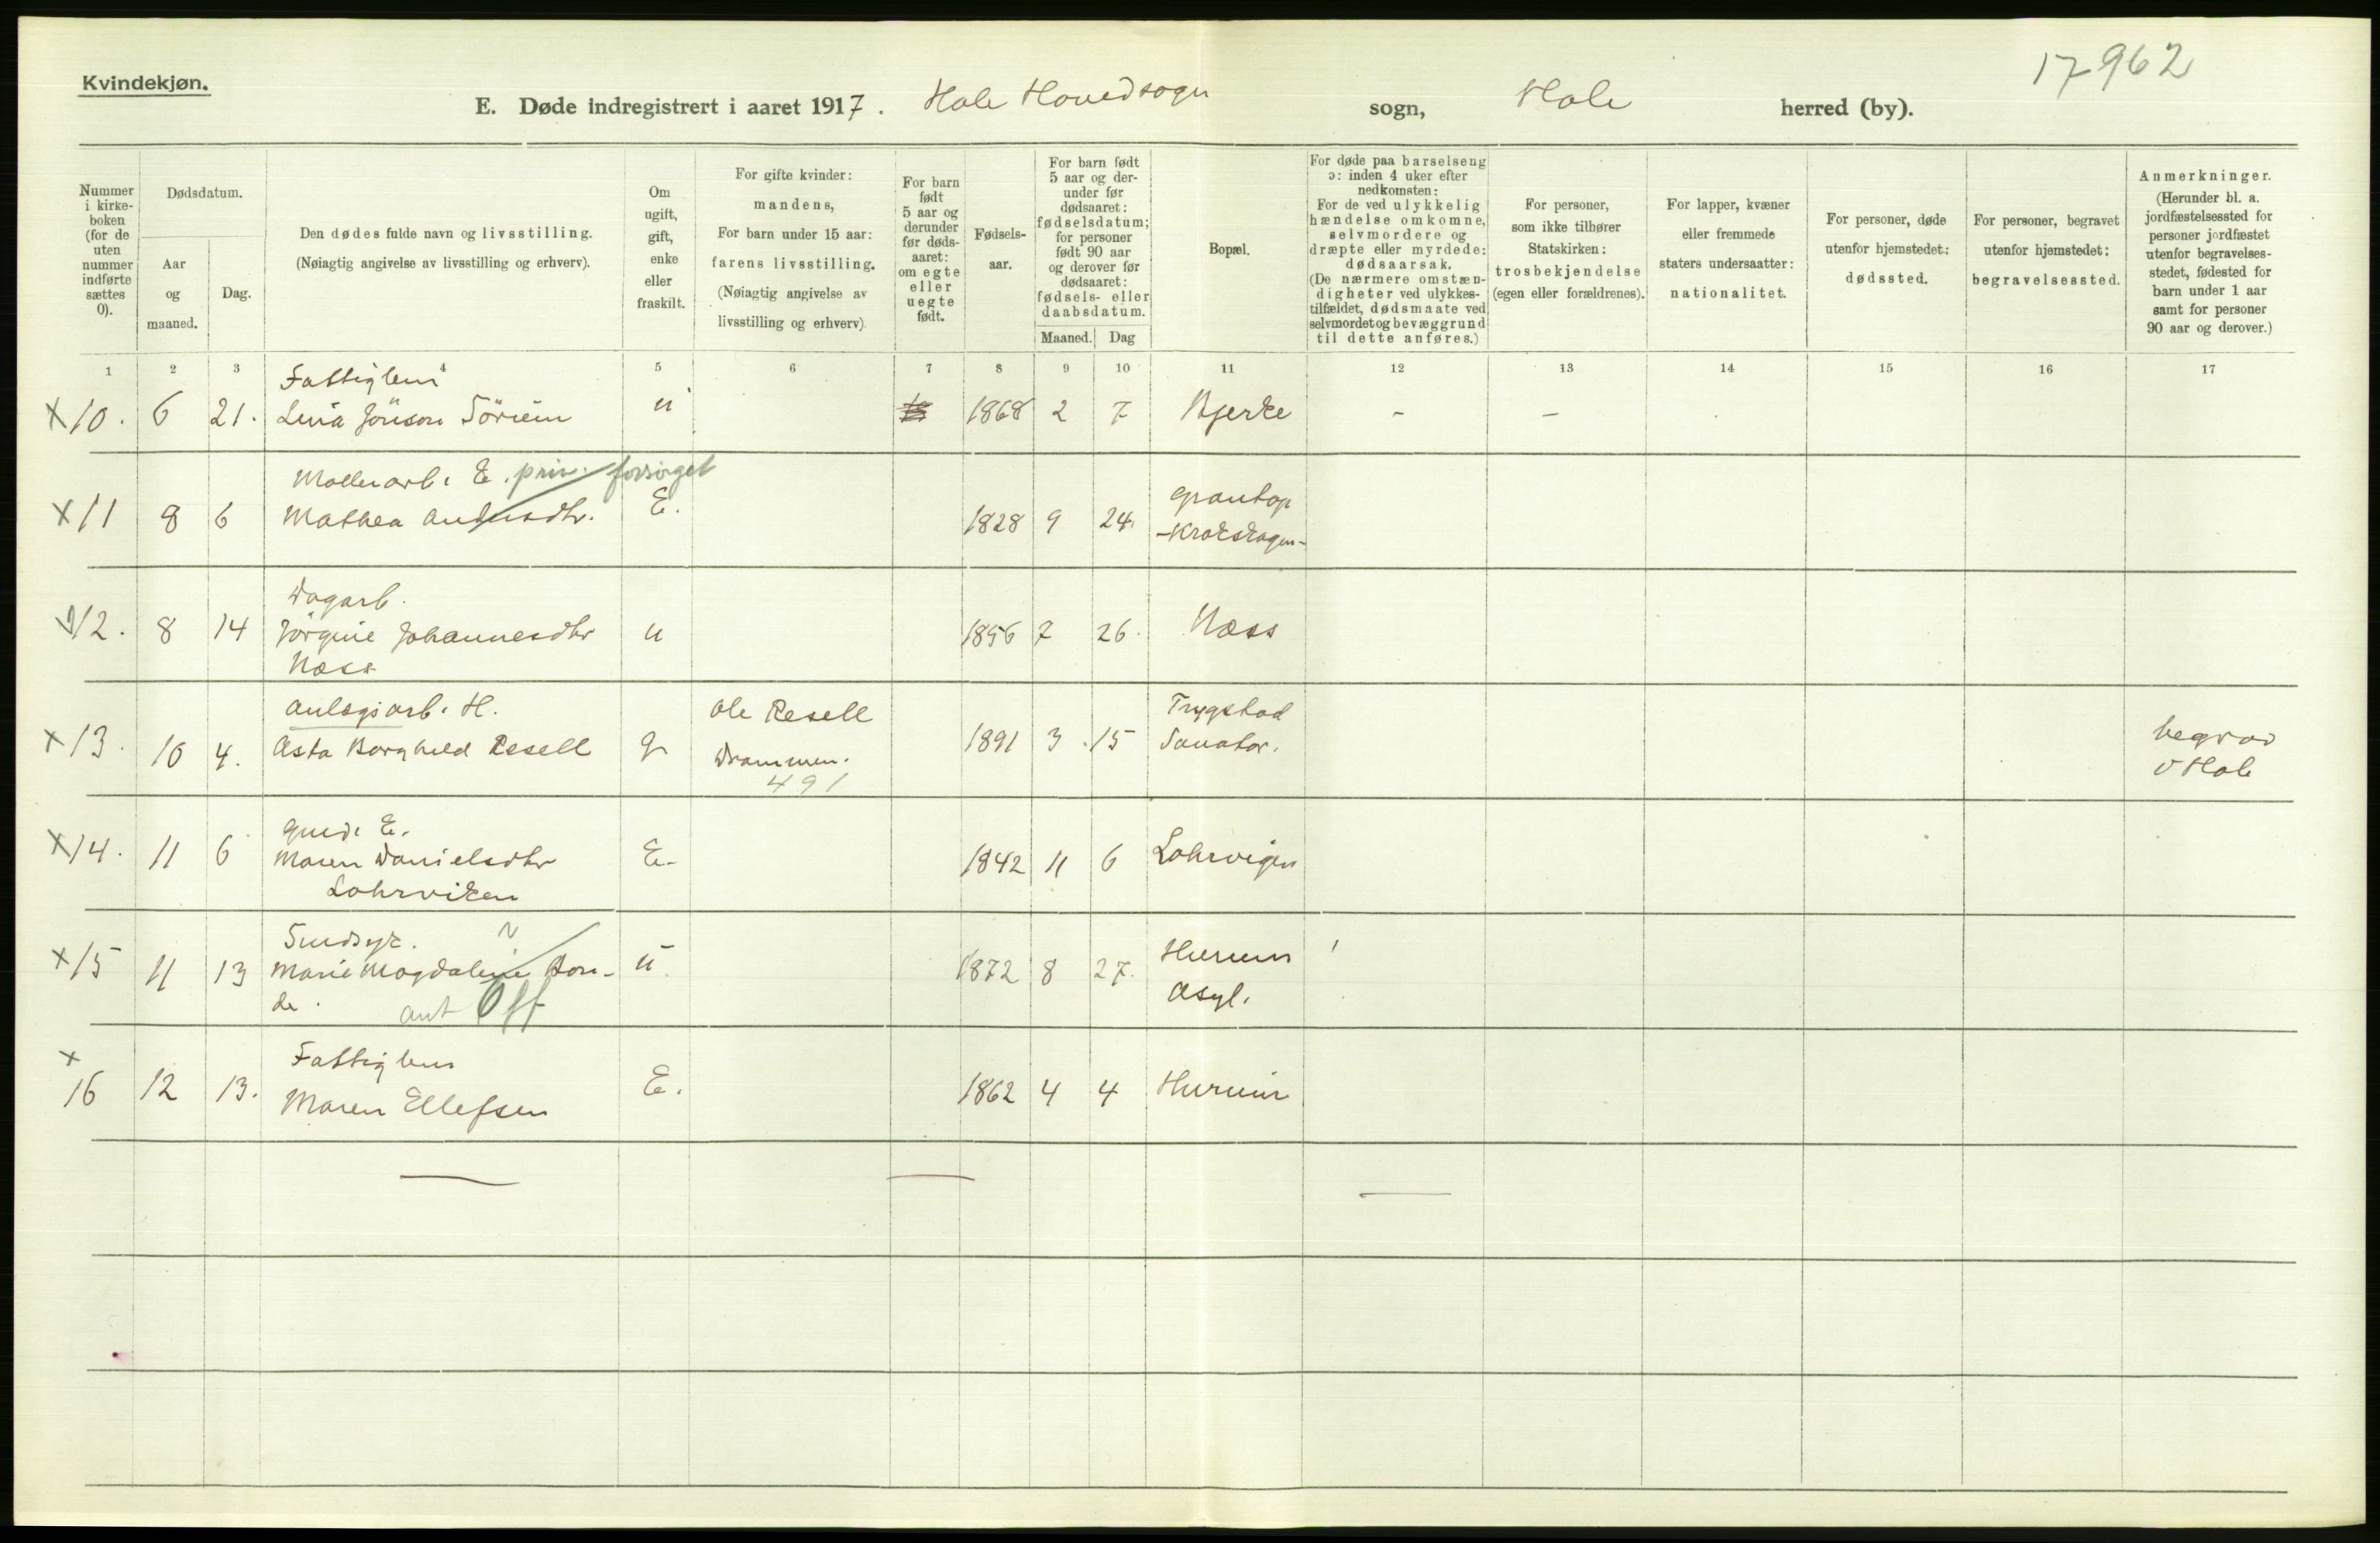 Kvindekjøn.
17962
E. Døde indregistrert i aaret 1917. Hole Hovedsogn sogn, Hole herred (by).
Nummer i kirke-boken (for de uten nummer indførte sættes 0).
Dødsdatum.
Aar og maaned.
Dag.
Den dødes fulde navn og livsstilling.
(Nøiagtig angivelse av livsstilling og erhverv).
Om ugift, gift, enke eller fraskilt.
For gifte kvinder: mandens,
For barn under 15 aar: farens livsstilling.
(Nøiagtig angivelse av livsstilling og erhverv).
For barn født 5 aar og derunder før døds-aaret: om egte eller uegte født.
Fødsels-aar.
For barn født 5 aar og der-under før dødsaaret: fødselsdatum; for personer født 90 aar og derover før dødsaaret: fødsels- eller daabsdatum.
Maaned. Dag
Bopæl.
For døde paa barselseng ɔ: inden 4 uker efter nedkomsten:
For de ved ulykkelig hændelse omkomne, selvmordere og dræpte eller myrdede: dødsaarsak.
(De nærmere omstæn-digheter ved ulykkes-tilfældet, dødsmaate ved selvmordet og bevæggrund til dette anføres.)
For personer, som ikke tilhører Statskirken: trosbekjendelse (egen eller forældrenes).
For lapper, kvæner eller fremmede staters undersaatter: nationalitet.
For personer, døde utenfor hjemstedet: dødssted.
For personer, begravet utenfor hjemstedet: begravelsessted.
Anmerkninger.
(Herunder bl. a. jordfæstelsessted for personer jordfæstet utenfor begravelses-stedet, fødested for barn under 1 aar samt for personer 90 aar og derover.)
1 2 3 4 5 6 7 8 9 10 11 12 13 14 15 16 17
Fattiglem
x 10. 6 21. Lina Jönson Sörum u 1868 2 7 Bjerke - -
Møllerarb. E. priv. forsörget
x 11 8 6 Mathea E. 1828 9 24. Grantop
-Krokskogen-
Dagarb.
12. 8 14 Jörgine Johannesdtr u 1856 7 26. Næss
Næss
Anlægsarb. H. Ole Resell Trygstad
x 13. 10 4. Asta Borghild Resell g Drammen. 1891 3 15 Sanator. begrav
491 v Hole
Gmd. E.
x 14. 11 6 Maren Danielsdtr E. 1842 11 6 Lohrvigen
Lohrviken
Sindsyk.
x 15 11 13 Marie Magdalene Bon- u. 1872 8 27. Hurum
de. ant Off Asyl.
Fattiglem
x 16 12 13. Maren Ellefsen E. 1862 4 4 Hurum